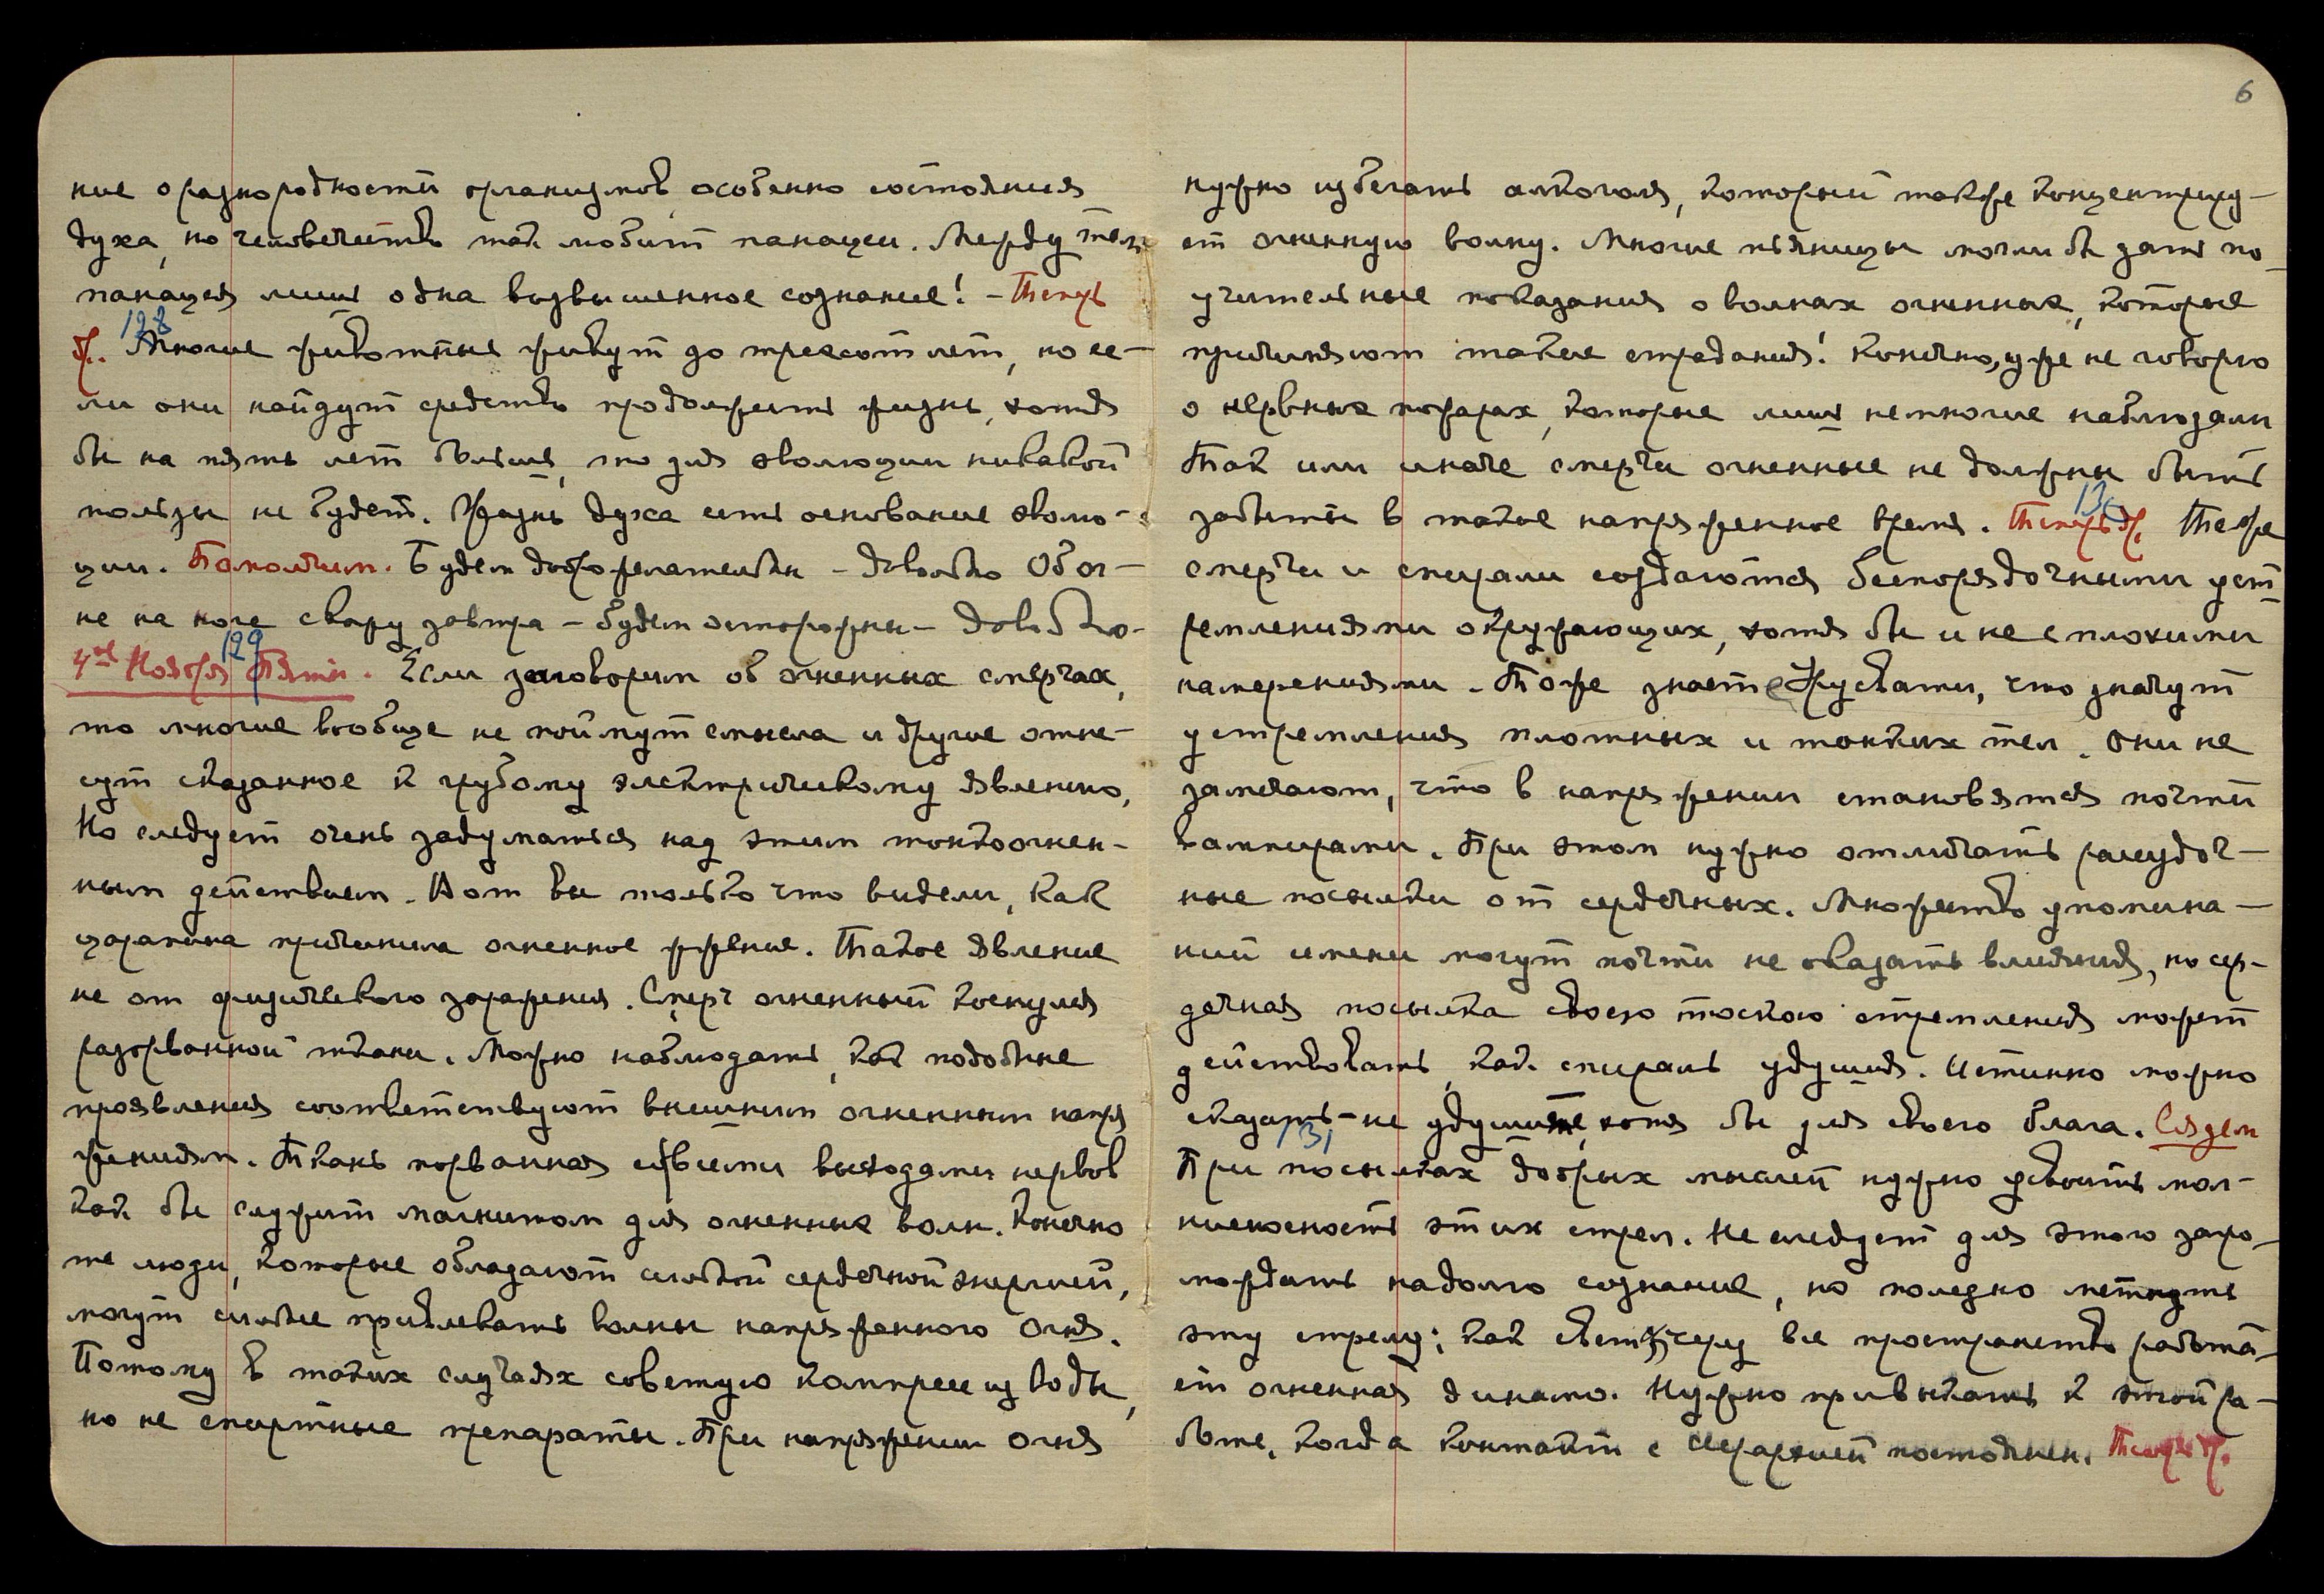 ние о разнородности организмов, особенно состояния
духа, но человечество так любит панацеи. Между тем
панацея лишь одна возвышенное сознание! – Теперь
др. 128 Многие животные живут до трехсот лет, но ес-
ли они найдут средство продолжить жизнь, хотя
бы на пять лет больше, то для эволюции никакой
пользы не будет. Жизнь духа есть основание эволю-
ции. Помолчим. Будем доброжелательны – довольно
не на скору завтра – будем осторожны – довольно.
4ое Ноября 129 Пятн. Если заговорим об огненных смерчах,
то многие вообще не поймут смысла и другие отне-
сут сказанное к грубому электрическому явлению,
Но следует очень задуматься над этим тонкоогнен-
ным действием. Вот вы только что видели, как
царапина причинила огненное жжение. Такое явление
не от физического заражения. Смерч огненный коснулся
разорванной ткани. Можно наблюдать, как подобные
проявления соответствуют внешним огненным напря
жениям. Ткань порванная со всеми выходами нервов
как бы служит магнитом для огненных волн. Конечно
те люди, которые обладают слабой сердечной энергией,
могут слабее привлекать волны напряженного Огня.
Потому в таких случаях советую компресс из Воды,
но не спиртные препараты. При напряжении Огня
6
нужно избегать алкоголя, который также концентриру-
ет огненную волну. Многие пьяницы могли бы дать по-
учительные показания о волнах огненных, которые
причиняют такие страдания! Конечно, уже не говорю
о нервных пожарах, которые лишь немногие наблюдали
Так или иначе смерчи огненные не должны быть
забыты в такое напряженное время. Теперь др. 130 Те же
смерчи и спирали создаются беспорядочными уст
ремлениями окружающих, хотя бы и не с плохими
намерениями. Тоже знает е Урусвати, что значут
устремления плотных и тонких тел. Они не
замечают, что в напряжении становятся почти
вампирами. При этом нужно отличать рассудоч-
ные посылки от сердечных. Множество упомина-
ний имени могут почти не оказать влияния, но сер-
дечная посылка своею тоскою стремления может
действовать, как спираль удушия. Истинно можно
сказать – не удушите, хотя бы для своего блага. Сядем
131
При посылках добрых мыслей нужно усвоить мол-
ниеносность этих стрел. Не следует для этого загро-
мождать надолго сознание, но полезно метнуть
эту стрелу; как свет через все пространство работа-
ет огненная динамо. Нужно привыкать к этой ра-
боте, когда контакт с Иерархией постоянен. Теперь др.